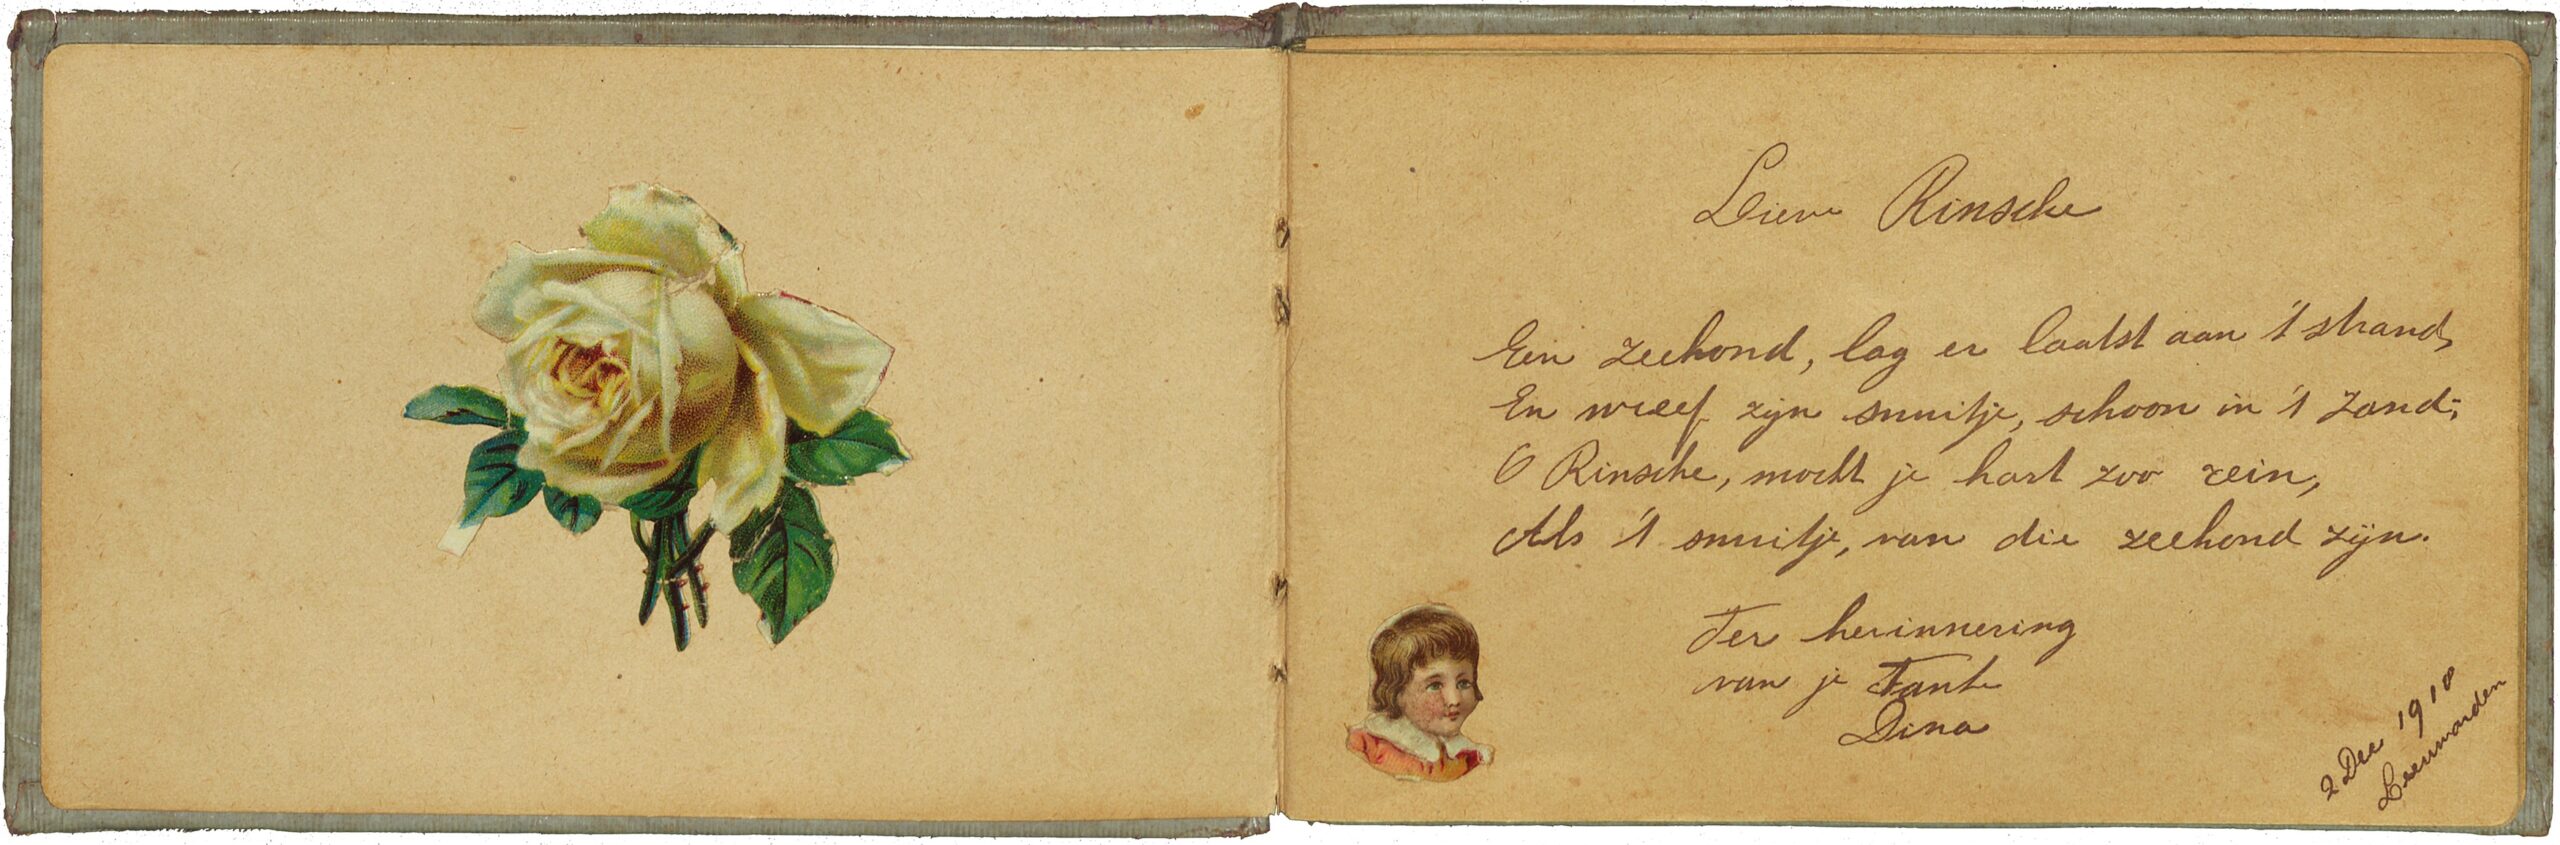 Lieve Rinsche
Een zeehond, lag er laatst aan 't strand,
En wreef zijn snuitje, schoon in 't zand;
O Rinsche, mocht je hart zoo rein,
Als 't snuitje, van die zeehond zijn.
Ter herinnering
van je Tante
Dina
2 Dec 1910
Leeuwarden